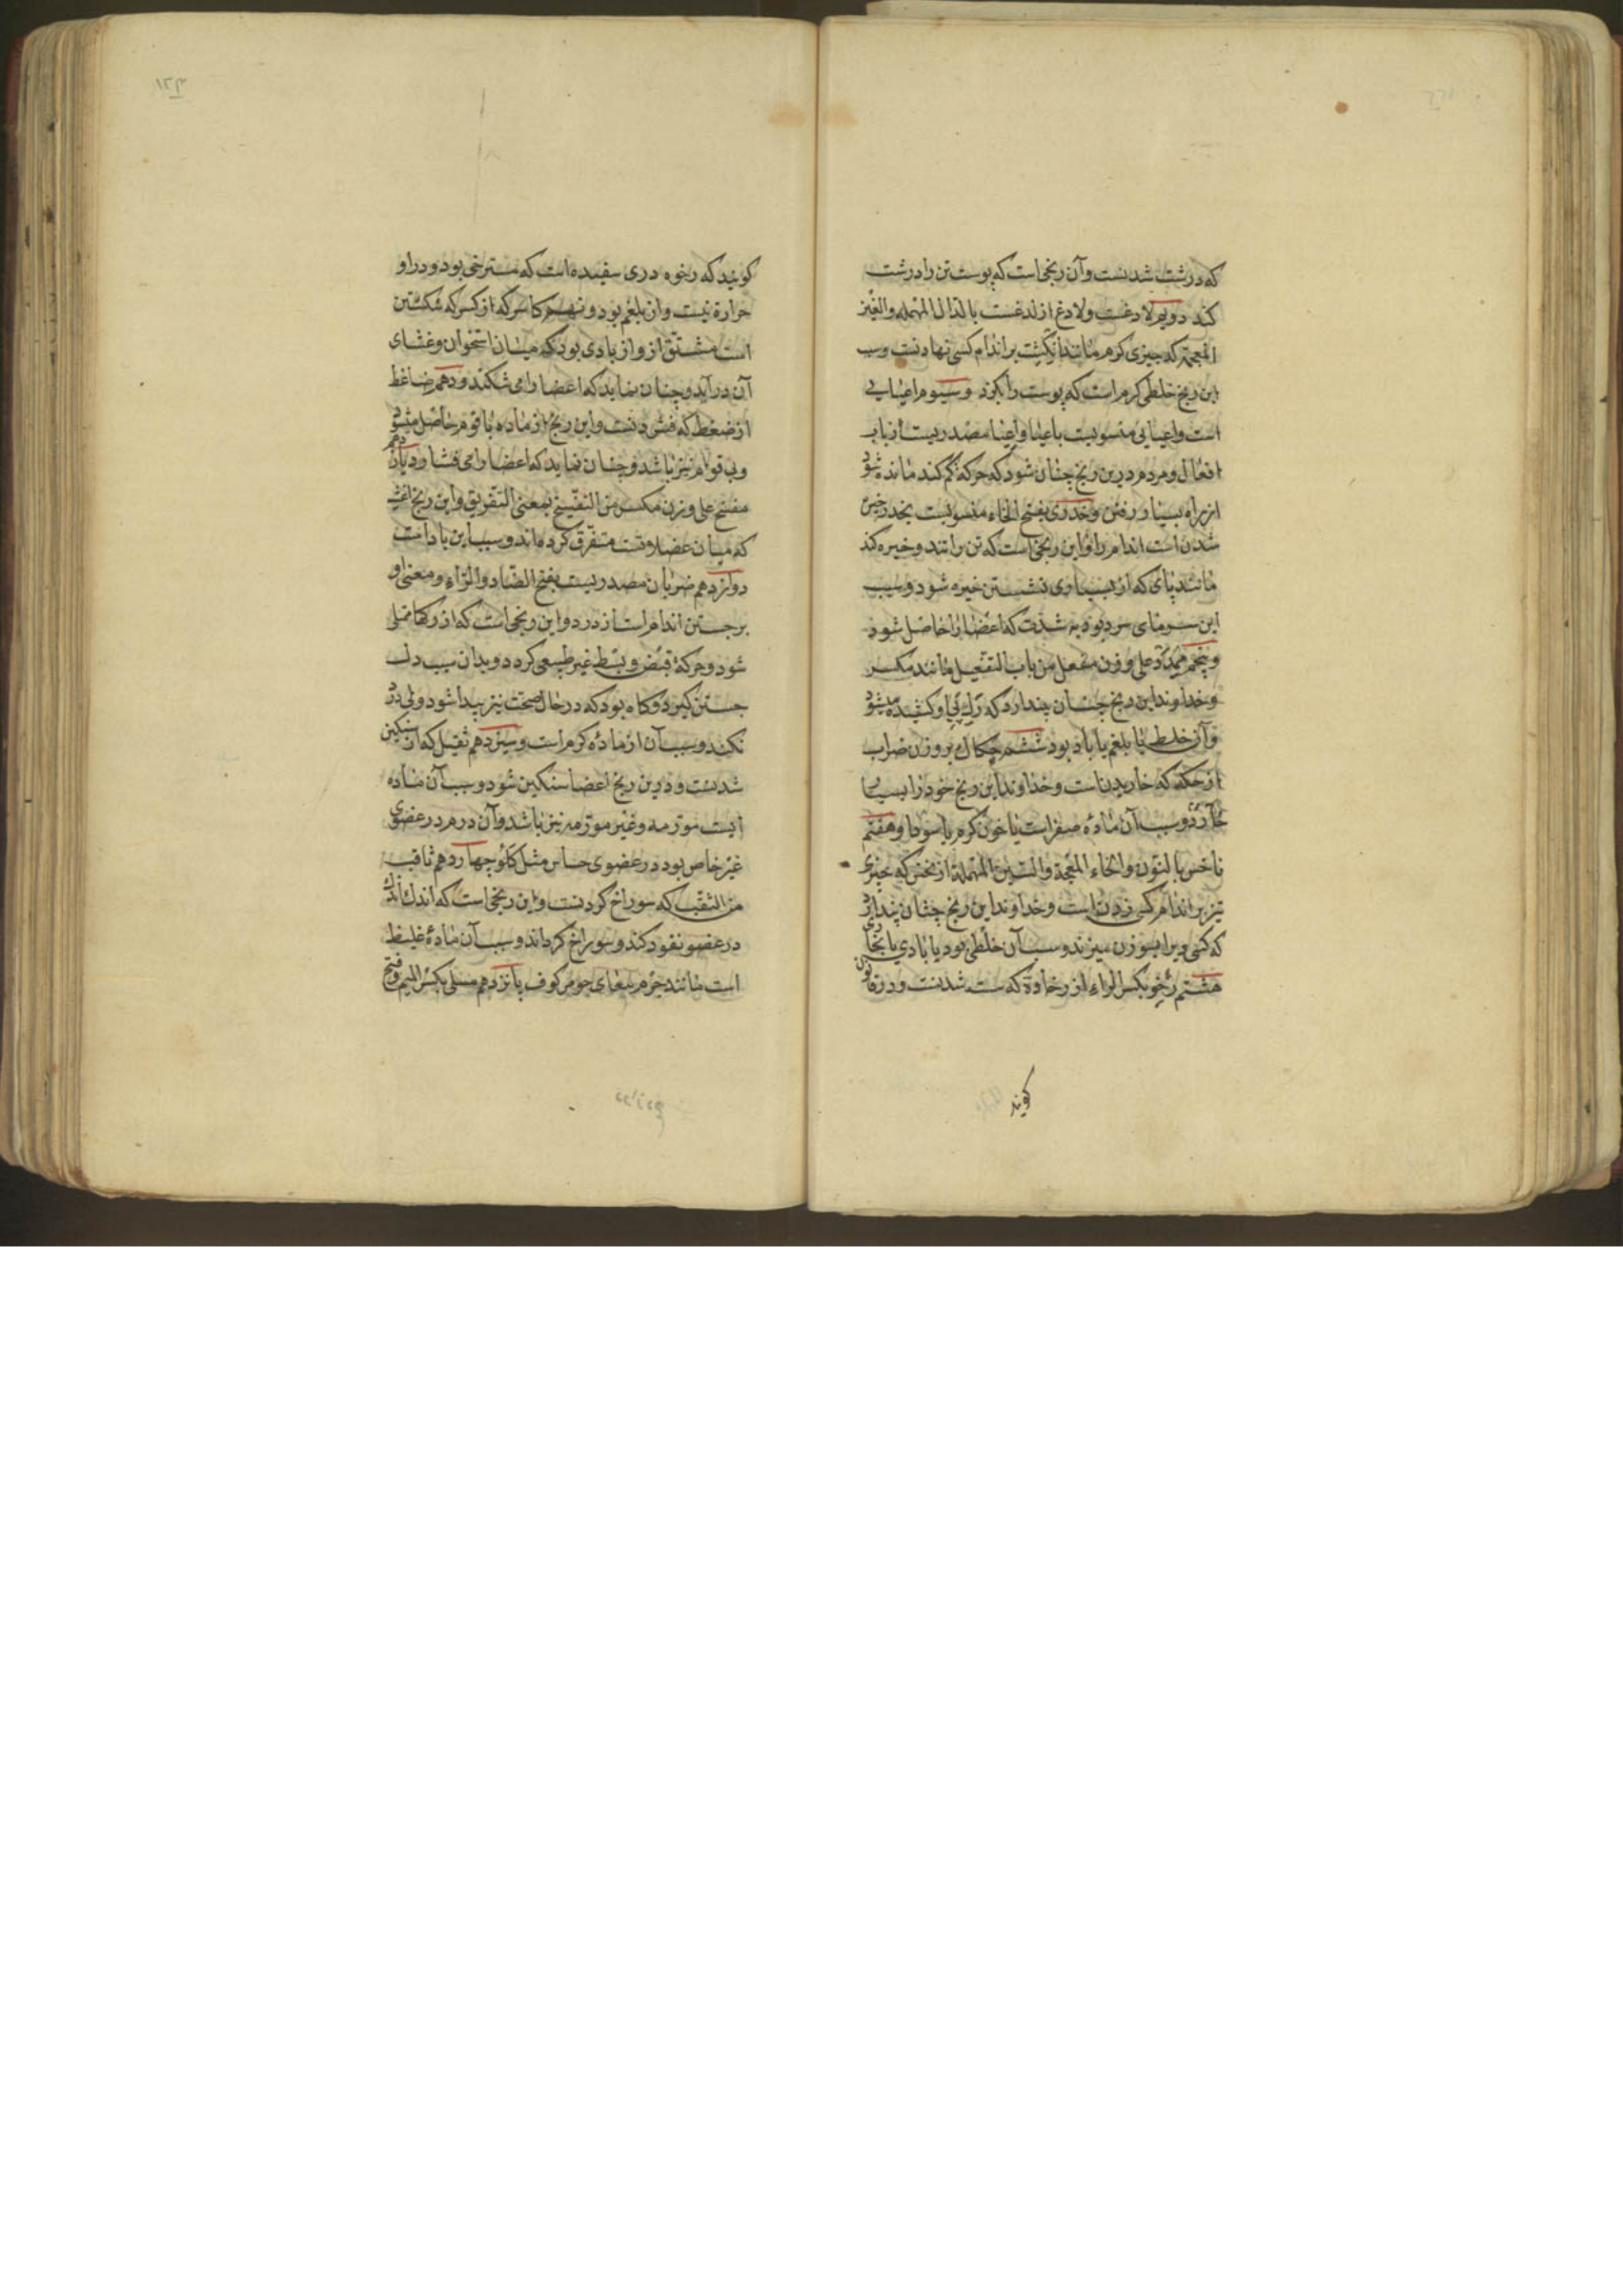 که درشت شدنست وآن رنجی است که پوست تن را درشت
کند دویم لادغست ولادغ از لدغست بالدال المهمله والغین
المعجمه که چیزی کرم مانند انکشت بر اندام کسی نهادنست وسبب
این رنج خلطی کرم است که پوست را بکزد وسیوم اعیایی
است واعیایی منسوبیست باعیا واعیا مصدریست از باب
افعال ومردم درین رنج چنان شود که حرکه کم کند مانده شود
از راه بسیار رفتن وخدری بفتح الخاء منسوبیست بخدر
شدن است اندام را واین رنجی است که تن براتند وخیره کند
مانند پای که از بسیاری نشستن خیره شود وسبب
این سرمای سرد بود به شدت که اعضا را حاصل شود
وپنجم ممدد علی وزن مفعل من باب التفعیل مانند مکسر
وخداوند این رنج چنان پندارد که رک پی او کشیده میشود
وآن خلط یا بلغم یا باد بود ششم حکاک بروزن ضراب
از حکه که خاریدن است وخداوند این رنج خود را بسیار
خارد وسبب آن ماده صفراست یا خون کرم یا سودا وهفتم
ناخس بالنون والخاء المعجمة والسین المهملة از نخس که چیزی
تیز بر اندام کسی زدن است وخداوند این رنج چنان پندارد
که کسی ویرا بسوزن میزند وسبب آن خلطی بود یا بادی یا بخاری
هشتم رخو بکسر الراء از رخاوة که سست شدنست ودر قانون
کویند
کویند که رخوه دری سفیده است که مسترخی بود ودر او
حرارة نیست واز بلغم بود ونهم کاسر که از کسر که شکستن
است مشتق از واز بادی بود که میان استخوان وغشای
آن درآید وچنان نماید که اعضا را می شکند ودهم ضاغط
از ضغط که فشردنست واین رنج از ماده با قوم حاصل میشود
وبی قوام نیز باشد وچنان نماید که اعضا را می فشارد یازدهم
مفسخ علی وزن مکسر من التفسیخ بمعنی التفریق واین رنج
که میان عضلاتست متفرق کرداند وسبب این باد است
دوازدهم ضربان مصدریست بفتح الضاد والراء ومعنی او
برجستن اندام است از درد واین رنجی است که از رکها ممتلی
شود وحرکة قبض وبسط غیر طبیعی کردد وبدان سبب دل
جستن کیرد وکاه بود که در حال صحت نیز پیدا شود ولی درد
نکند وسبب آن از ماده کرم است وسیزدهم ثقیل که از سنکین
شدنست ودرین رنج اعضا سنکین شود وسبب آن ماده
ایست مورمه وغیر مورمه نیز باشد وآن درم در عضوی
غیر خاص بود در عضوی حساس مثل کلو چهاردهم ثاقب
من الثقب که سوراخ کردنست واین رنجی است که اندک اندک
در عضو نفوذ کند وسوراخ کرداند وسبب آن ماده غلیظ
است مانند جرم معای پانزدهم مسلی بکسر المیم وفتح
دوازدهم